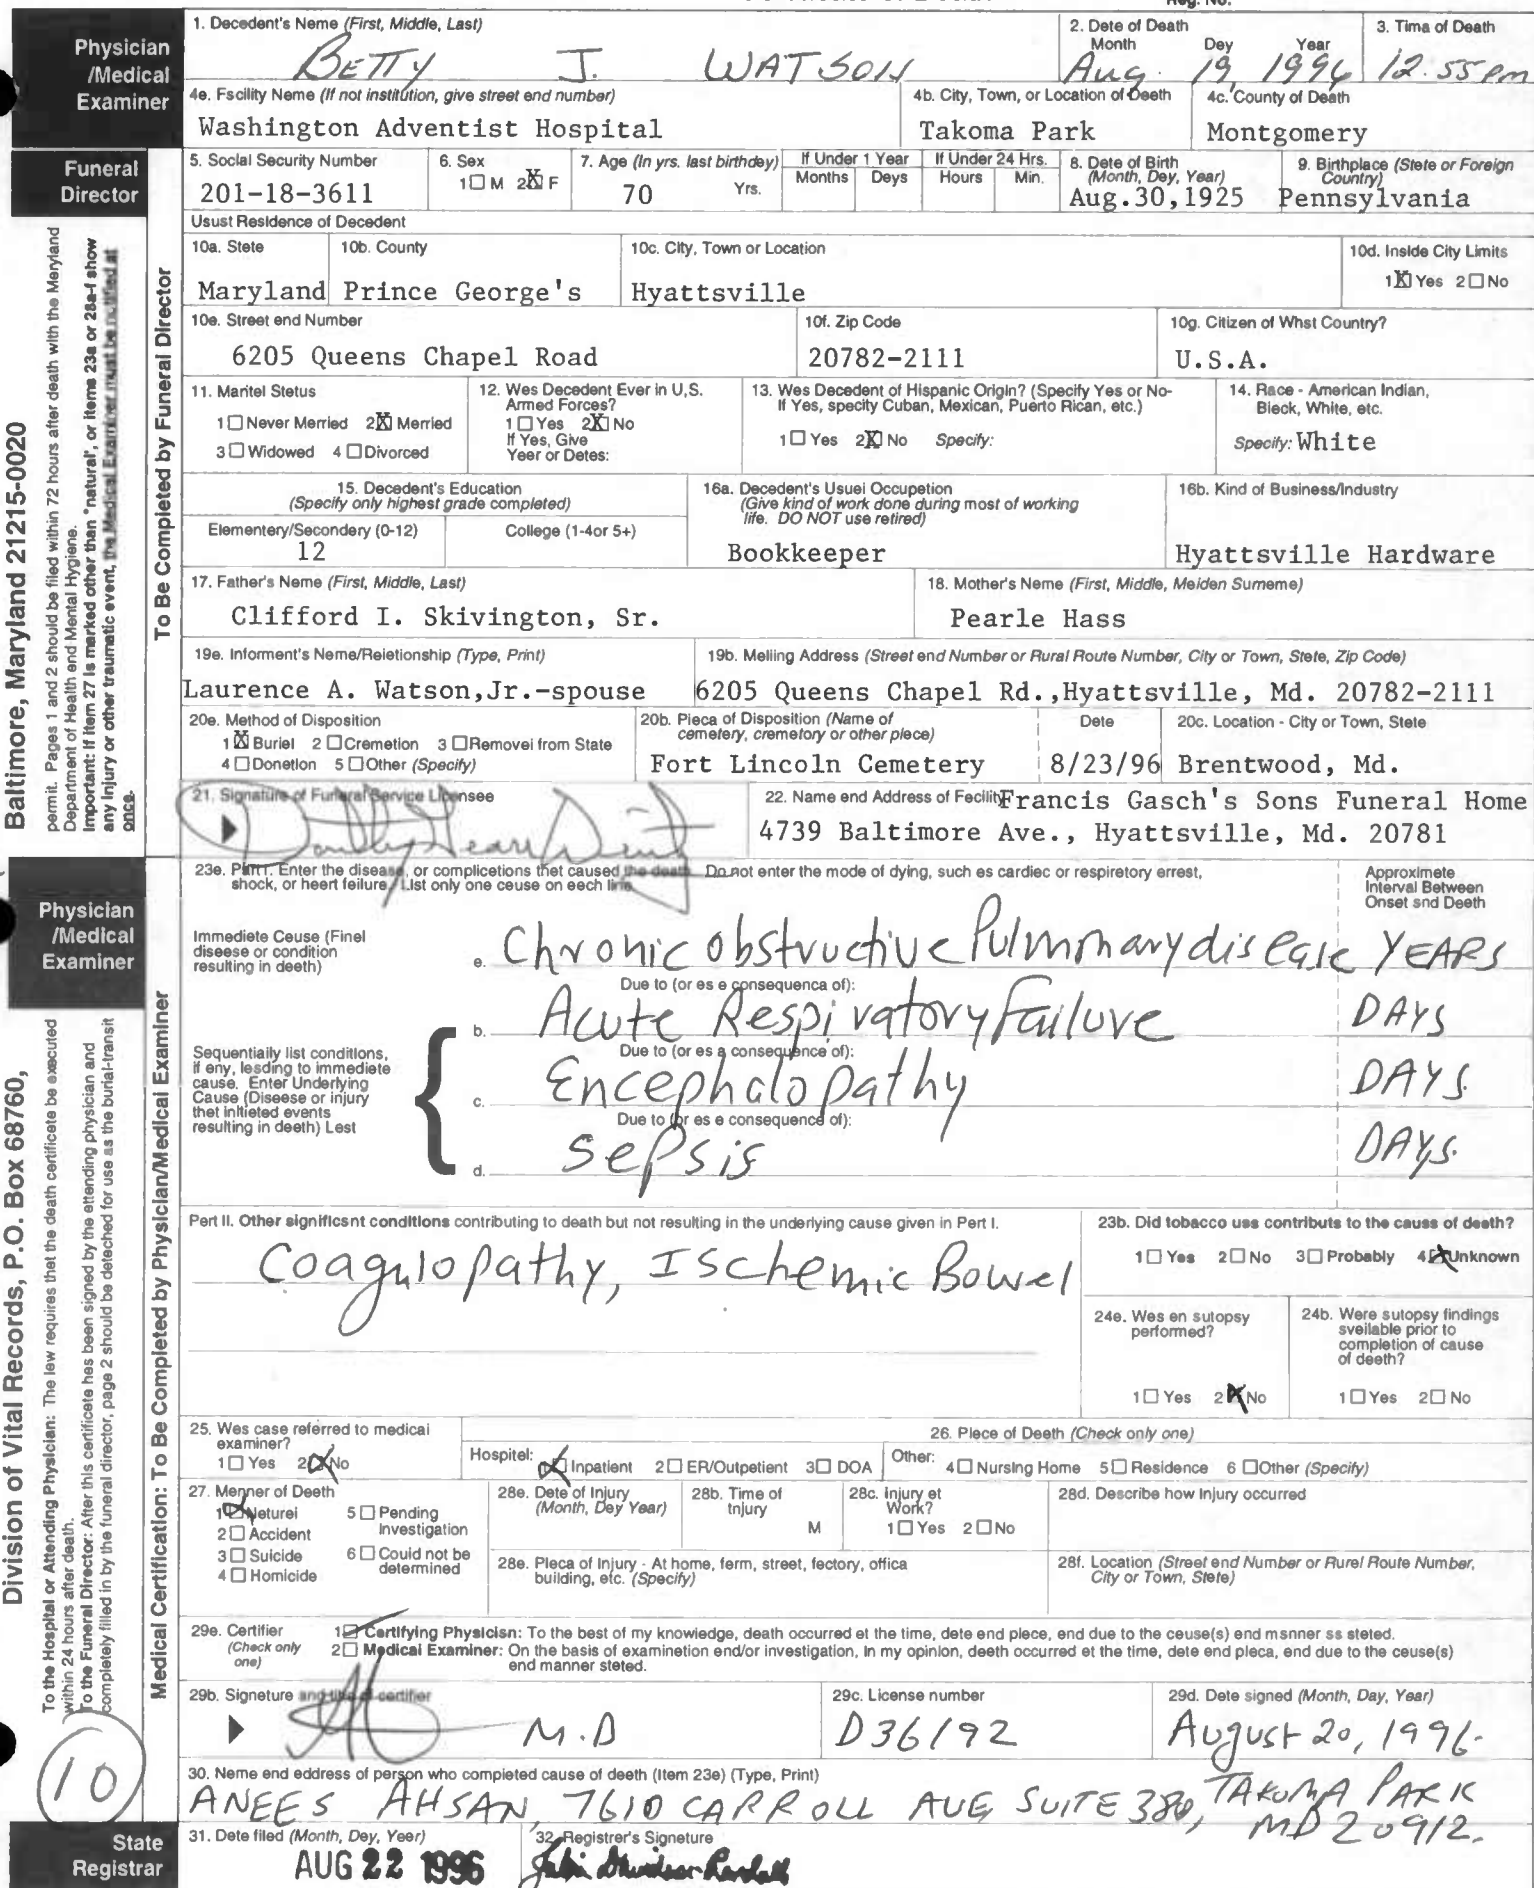 Reg. No.
Physician /Medical Examiner
1. Decedent's Name (First, Middle, Last)
BETTY J. WATSON
2. Dete of Death
Month Dey Year
Aug. 19, 1996
3. Tima of Death
12.55 pm
4e. Fscility Name (If not institution, give street end number)
Washington Adventist Hospital
4b. City, Town, or Location of Deeth
Takoma Park
4c. County of Death
Montgomery
Funeral Director
5. Social Security Number
201-18-3611
6. Sex
1☐ M 2☒ F
7. Age (In yrs. last birthdey)
70 Yrs.
If Under 1 Year
Months Deys
If Under 24 Hrs.
Hours Min.
8. Dete of Birth
(Month, Dey, Year)
Aug.30,1925
9. Birthplace (Stete or Foreign Country)
Pennsylvania
Usust Residence of Decedent
10a. Stete
Maryland
10b. County
Prince George's
10c. City, Town or Location
Hyattsville
10d. Inside City Limits
1☒ Yes 2☐ No
10e. Street end Number
6205 Queens Chapel Road
10f. Zip Code
20782-2111
10g. Citizen of Whst Country?
U.S.A.
11. Maritel Stetus
1☐ Never Merried 2☒ Merried
3☐ Widowed 4☐ Divorced
12. Wes Decedent Ever in U,S.
Armed Forces?
1☐ Yes 2☒ No
If Yes, Give
Yeer or Detes:
13. Wes Decedent of Hispanic Origin? (Specify Yes or No-
If Yes, specity Cuban, Mexican, Puerto Rican, etc.)
1☐ Yes 2☒ No Specify:
14. Race - American Indian,
Bleck, White, etc.
Specify: White
15. Decedent's Education
(Specify only highest grade completed)
Elementery/Secondery (0-12)
12
College (1-4or 5+)
16a. Decedent's Usuei Occupetion
(Give kind of work done during most of working
life. DO NOT use retired)
Bookkeeper
16b. Kind of Business/Industry
Hyattsville Hardware
17. Father's Name (First, Middle, Last)
Clifford I. Skivington, Sr.
18. Mother's Name (First, Middle, Meiden Surneme)
Pearle Hass
19e. Informent's Neme/Reietionship (Type, Print)
Laurence A. Watson,Jr.-spouse
19b. Melling Address (Street end Number or Rural Route Number, City or Town, Stete, Zip Code)
6205 Queens Chapel Rd.,Hyattsville, Md. 20782-2111
20e. Method of Disposition
1☒ Buriel 2☐ Cremetion 3☐ Removei from State
4☐ Donetlon 5☐ Other (Specify)
20b. Pieca of Disposition (Name of
cemetery, cremetory or other plece)
Fort Lincoln Cemetery
Dete
8/23/96
20c. Location - City or Town, Stete
Brentwood, Md.
21. Signature of Funeral Service Licensee
22. Name end Address of Fecility Francis Gasch's Sons Funeral Home
4739 Baltimore Ave., Hyattsville, Md. 20781
To Be Completed by Funeral Director
Baltimore, Maryland 21215-0020
permit. Pages 1 and 2 should be filed within 72 hours after death with the Meryland
Department of Health end Mental Hygiene.
Important: If item 27 is marked other than "natural", or items 23a or 28a-f show
any injury or other traumatic event, the Medical Examiner must be notified at
once.
Physician /Medical Examiner
23e. Part I. Enter the disease, or complications thet caused the death. Do not enter the mode of dying, such es cardiec or respiretory errest,
shock, or heert feilure. List only one ceuse on eech line.
Approximete
Interval Between
Onset snd Deeth
Immediete Ceuse (Finel
diseese or condition
resulting in deeth)
e. Chronic obstructive Pulmonary disease YEARS
Due to (or es e consequenca of):
b. Acute Respiratory Failure DAYS
Due to (or es a consequence of):
c. Encephalopathy DAYS
Due to (or es e consequence of):
d. Sepsis DAYS.
Sequentially list conditions,
if eny, lesding to immediete
cause. Enter Underlying
Cause (Diseese or injury
thet initieted events
resulting in deeth) Lest
Part II. Other significsnt conditlons contributing to death but not resulting in the underlying cause given in Part I.
Coagulopathy, Ischemic Bowel
23b. Did tobacco uss contributs to the causs of dsath?
1☐ Yss 2☐ No 3☐ Probably 4☒ Unknown
24e. Wes en sutopsy
performed?
1☐ Yes 2☒ No
24b. Were sutopsy findings
sveilable prior to
completion of cause
of deeth?
1☐ Yes 2☐ No
25. Wes case referred to medical
examiner?
1☐ Yes 2☒ No
26. Plece of Deeth (Check only one)
Hospitel: 1☒ Inpatient 2☐ ER/Outpetient 3☐ DOA
Other: 4☐ Nursing Home 5☐ Residence 6☐ Other (Specify)
27. Menner of Deeth
1☒ Neturei 5☐ Pending Investigation
2☐ Accident
3☐ Suicide 6☐ Could not be determined
4☐ Homicide
28e. Dete of Injury
(Month, Dey Year)
28b. Time of
tnjury
M
28c. Injury et
Work?
1☐ Yes 2☐ No
28d. Describe how Injury occurred
28e. Pleca of Injury - At home, ferm, street, fectory, offica
building, etc. (Specify)
28f. Location (Street end Number or Rurel Route Number,
City or Town, Stete)
29e. Certifier
(Check only
one)
1☒ Certifying Physicisn: To the best of my knowledge, death occurred et the time, dete end plece, end due to the ceuse(s) end msnner ss steted.
2☐ Medical Examiner: On the basis of examinetion end/or investigation, In my opinion, deeth occurred et the time, dete end pleca, end due to the ceuse(s)
end manner steted.
29b. Signeture and title of certifier
M.D
29c. License number
D36192
29d. Dete signed (Month, Day, Year)
August 20, 1996.
30. Neme end eddress of person who completed cause of deeth (Item 23e) (Type, Print)
ANEES AHSAN, 7610 CARROLL AVE, SUITE 380, TAKOMA PARK
MD 20912.
Medical Certification: To Be Completed by Physician/Medical Examiner
Division of Vital Records, P.O. Box 68760,
To the Hospital or Attending Physician: The lew requires thet the death certificete be executed
within 24 hours after death.
To the Funeral Director: After this certificete hes been signed by the ettending physician and
completely filled in by the funeral director, page 2 should be deteched for use as the burial-transit
10
State Registrar
31. Dete filed (Month, Dey, Yeer)
AUG 22 1996
32. Registrer's Signeture